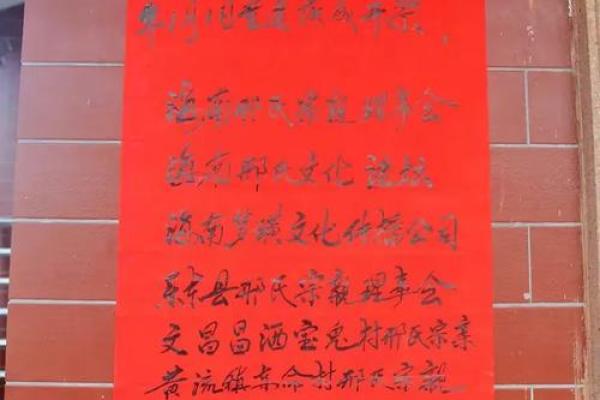 年1月1日
海南邢氏宗亲理事会
海南邢氏文化论坛
海南梦璜文化传播公司
乐东县邢氏宗亲理事会
文昌昌洒宝兔村邢氏宗亲
黄流镇东命村邢氏宗亲